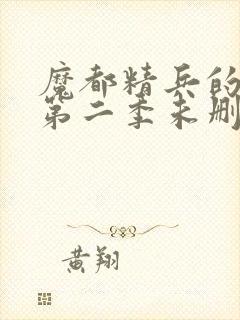 魔都精兵的
第二季未删
黄翔